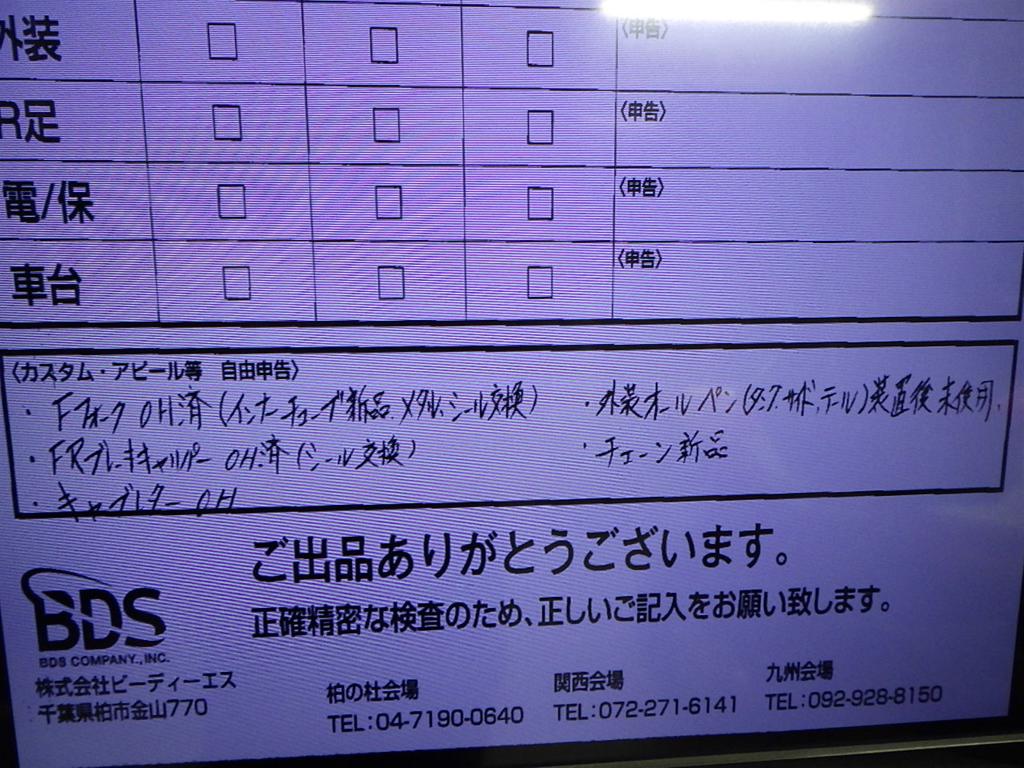 外装
〈申告〉
R足
〈申告〉
電/保
〈申告〉
車台
〈申告〉
〈カスタム・アピール等 自由申告〉
・Fフォーク OH済(インナーチューブ新品、メタル、シール交換)
・FRブレーキキャリパー OH済(シール交換)
・キャブレターOH
・外装オールペン(タンク、サイド、テール)装置後未使用、
・チェーン新品
ご出品ありがとうございます。
正確精密な検査のため、正しいご記入をお願い致します。
BDS
BDS COMPANY., INC.
株式会社ビーディーエス
千葉県柏市金山770
柏の杜会場
TEL:04-7190-0640
関西会場
TEL:072-271-6141
九州会場
TEL:092-928-8150